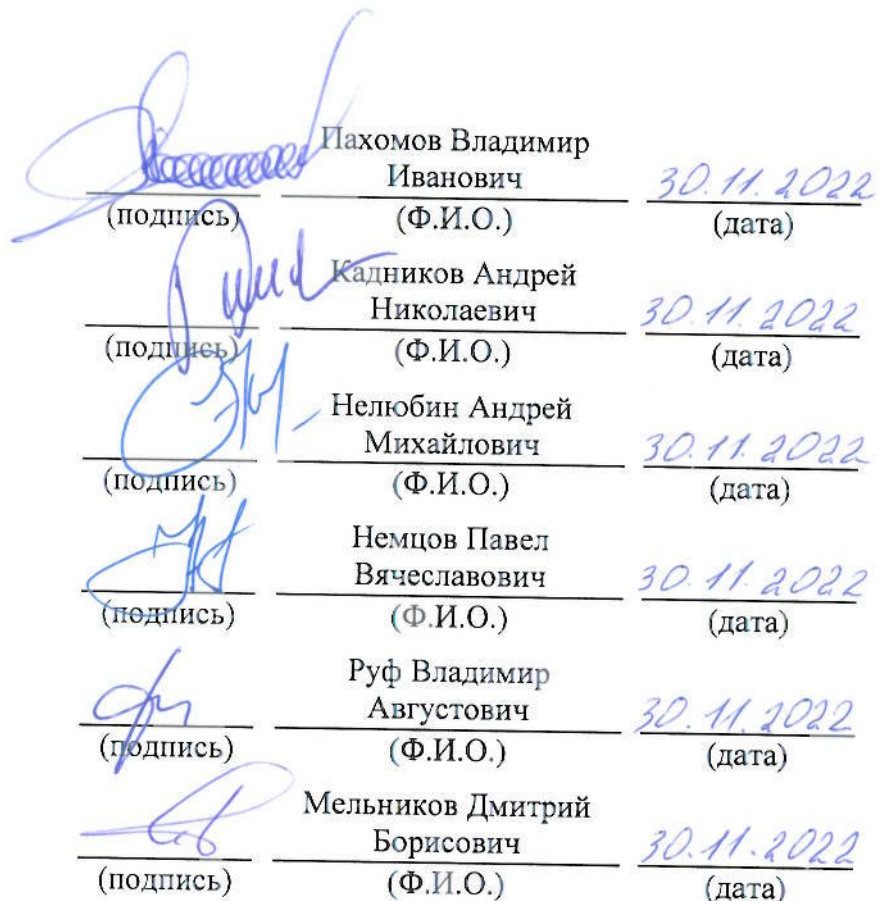 Пахомов Владимир
Иванович 30.11.2022
(подпись) (Ф.И.О.) (дата)
Кадников Андрей
Николаевич 30.11.2022
(подпись) (Ф.И.О.) (дата)
Нелюбин Андрей
Михайлович 30.11.2022
(подпись) (Ф.И.О.) (дата)
Немцов Павел
Вячеславович 30.11.2022
(подпись) (Ф.И.О.) (дата)
Руф Владимир
Августович 30.11.2022
(подпись) (Ф.И.О.) (дата)
Мельников Дмитрий
Борисович 30.11.2022
(подпись) (Ф.И.О.) (дата)